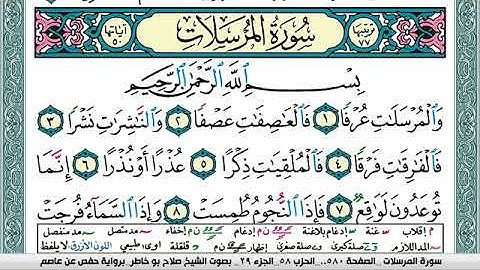 ترتيبها ٧٧ سُورَةُ المُرْسَلَات آياتها ٥٠
بِسْمِ ٱللَّهِ ٱلرَّحْمَٰنِ ٱلرَّحِيمِ
وَٱلْمُرْسَلَٰتِ عُرْفًا ١ فَٱلْعَٰصِفَٰتِ عَصْفًا ٢ وَٱلنَّٰشِرَٰتِ نَشْرًا ٣
فَٱلْفَٰرِقَٰتِ فَرْقًا ٤ فَٱلْمُلْقِيَٰتِ ذِكْرًا ٥ عُذْرًا أَوْ نُذْرًا ٦ إِنَّمَا
تُوعَدُونَ لَوَٰقِعٌ ٧ فَإِذَا ٱلنُّجُومُ طُمِسَتْ ٨ وَإِذَا ٱلسَّمَآءُ فُرِجَتْ
م إقلاب غنة إدغام بلاغنة إدغام ن م إخفاء ن م مد متصل مد منفصل
المد اللازم صلة كبرى صلة صغرى إظهار ن م قلقلة اوى طبيعي اللون الأزرق لا يلفظ
سورة المرسلات _ الصفحة ٥٨٠_ الحزب ٥٨_ الجزء ٢٩ _ بصوت الشيخ صلاح بو خاطر_ برواية حفص عن عاصم